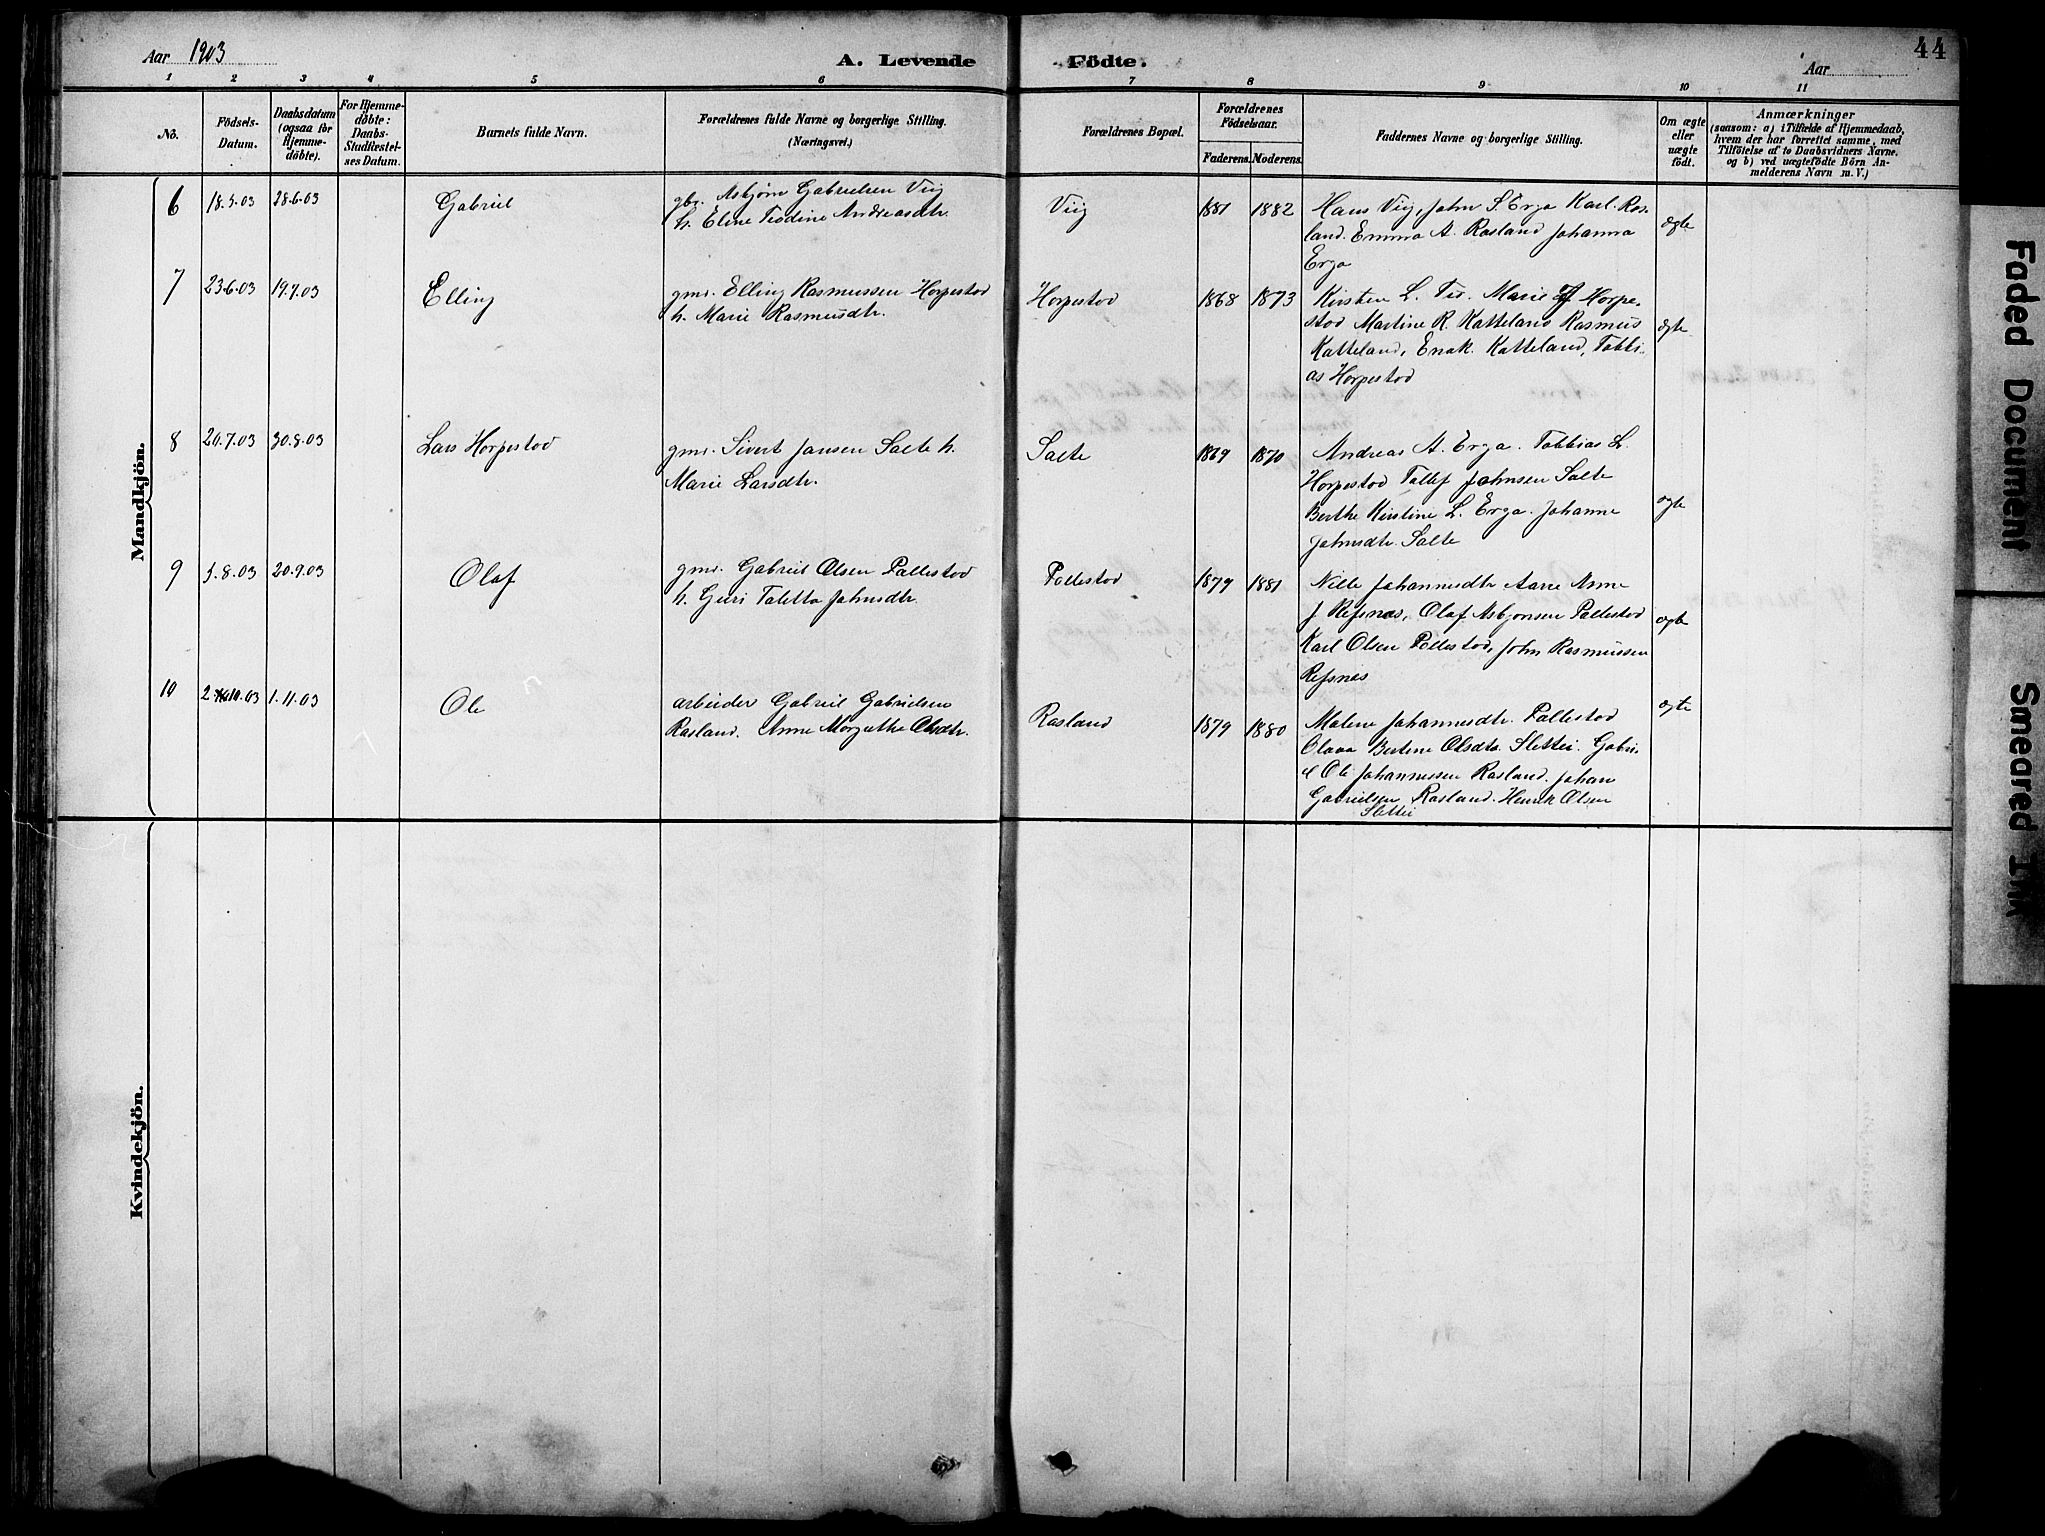 Aar 1903
A. Levende Födte.
Aar
44
1 2 3 4 5 6 7 8 9 10 11
No.
Födsels-
Datum.
Daabsdatum
(ogsaa for
Hjemme-
döbte).
For Hjemme-
döbte:
Daabs-
Stadfæstel-
ses Datum.
Barnets fulde Navn.
Forældrenes fulde Navne og borgerlige Stilling.
(Næringsvei.)
Forældrenes Bopæl.
Forældrenes
Födselsaar.
Faderens. Moderens.
Faddernes Navne og borgerlige Stilling.
Om ægte
eller
uægte
födt.
Anmærkninger
(saasom: a) i Tilfælde af Hjemmedaab,
hvem der har forrettet samme, med
Tilföielse af to Daabsvidners Navne,
og b) ved uægtefödte Börn An-
melderens Navn m. V.)
Mandkjön.
6 18.5.03 28.6.03 Gabriel
gbr. Asbjørn Gabrielsen Viig
h. Eline Teodine Andreasdtr.
Viig 1881 1882
Hans Viig, John S. Erga Karl. Ras-
land. Emma A. Rasland Johanna
Erga
ægte
7 23.6.03 19.7.03 Elling
gmd. Elling Rasmussen Horpestad
h. Marie Rasmusdtr.
Horpestad 1868 1873
Kirsten L. Marie Horpe-
stad Martine R. Katteland Rasmus
Katteland, Enok. Katteland, Tobi-
as Horpestad
ægte
8 20.7.03 30.8.03 Lars Horpestad
gmd. Sivert Jansen Salte h.
Marie Larsdtr.
Salte 1869 1870
Andreas A. Erga. Tobbias L.
Horpestad Tollef Johnsen Salte
Berthe Kirstine L. Erga. Johanne
Johnsdtr. Salte
ægte
9 5.8.03 20.9.03 Olaf
gmd. Gabriel Olsen Pollestad
h. Guri Taletta Johnsdtr.
Pollestad 1879 1881
Nille Johannesdtr Aane Anne
J Refsnæs, Olaf Asbjønsen Pollestad
Karl Olsen Pollestad, John Rasmussen
Refsnæs
ægte
10 2.10.03 1.11.03 Ole
arbeider Gabriel Gabrielsen
Rasland. Anne Margrethe Olsdtr.
Rasland 1879 1880
Malene Johannesdtr. Pollestad
Olava Bertine Olsdtr. Slettei. Gabri-
el Ole Johannessen Rasland. Johan
Gabrielsen Rasland. Henrik Olsen
Slettei
ægte
Kvindekjön.
Faded Document
Smeared Ink